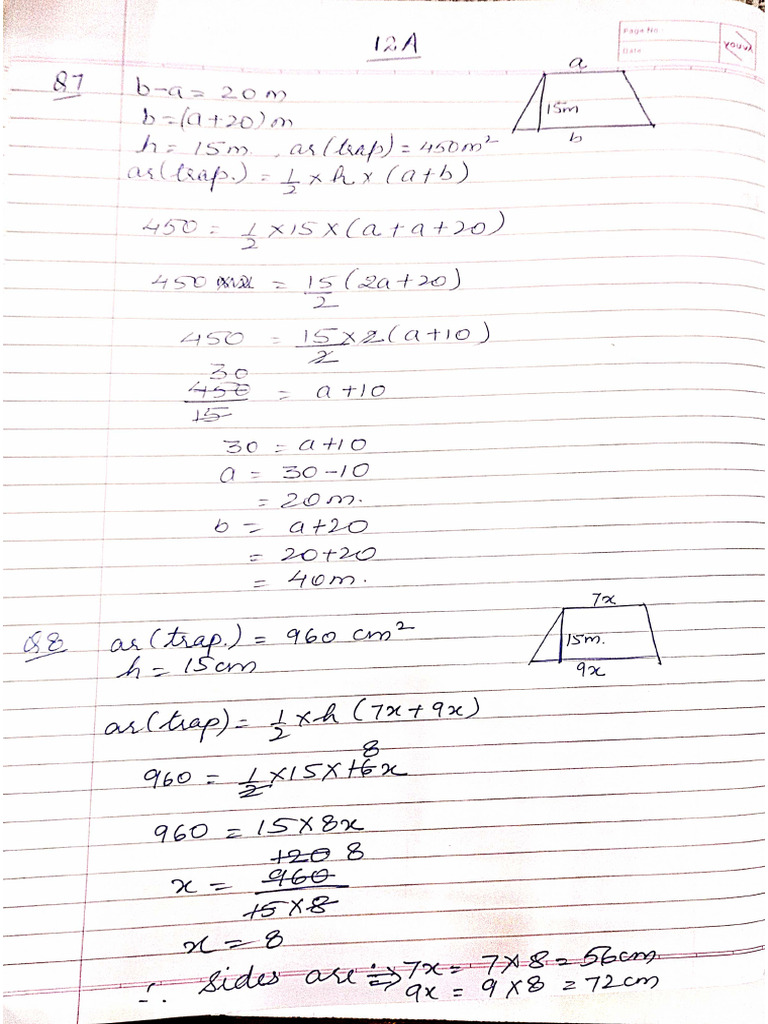 12A
Page No.
Date
youva
Q7
b-a = 20m
b=(a+20)m
h= 15m, ar(trap)= 450m²
ar(trap.) = 1/2 × h × (a+b)
a
15m
b
450 = 1/2 ×15 ×(a+a+20)
450 = 15/2 (2a+20)
450 = 15×2(a+10)/2
30
450/15 = a+10
30 = a+10
a = 30-10
= 20m.
b = a+20
= 20+20
= 40m.
Q8
ar(trap.) = 960 cm²
h= 15cm
7x
15m.
9x
ar(trap)= 1/2 ×h (7x+9x)
8
960 = 1/2 ×15×16x
960 = 15×8x
120 8
x = 960/15×8
x = 8
∴ sides are ⇒ 7x = 7×8 = 56cm
9x = 9×8 = 72cm